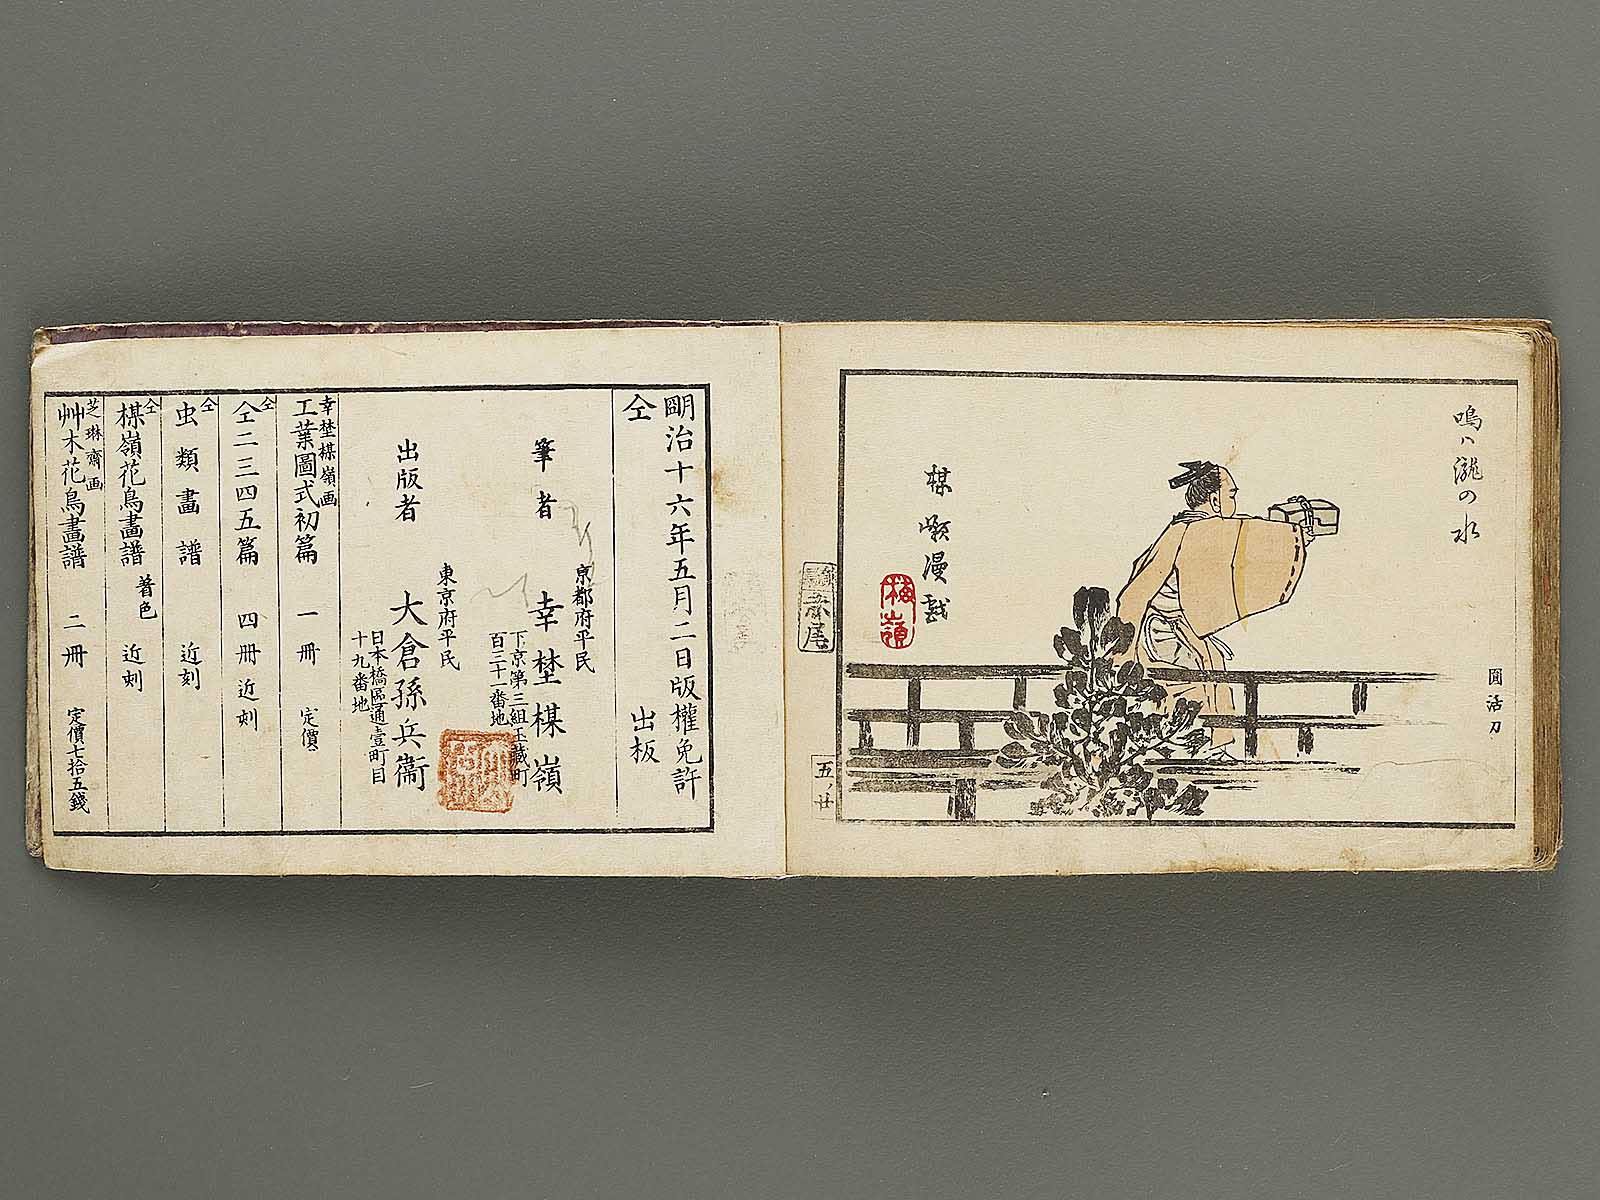 鳴ハ瀧の水
圓活刀
楳嶺漫戯
梅嶺
赤尾
五ノ廿
明治十六年五月二日版權免許
仝　出板
筆者
京都府平民
幸埜楳嶺
下京第三組玉藏町
百三十一番地
出版者
東京府平民
大倉孫兵衞
日本橋區通壹町目
十九番地
幸埜楳嶺画
工業圖式初篇　一冊　定價
仝
仝二三四五篇　四冊　近刻
仝
虫類畫譜　近刻
仝
楳嶺花鳥畫譜　着色　近刻
芝琳齋画
艸木花鳥畫譜　二冊　定價七拾五錢